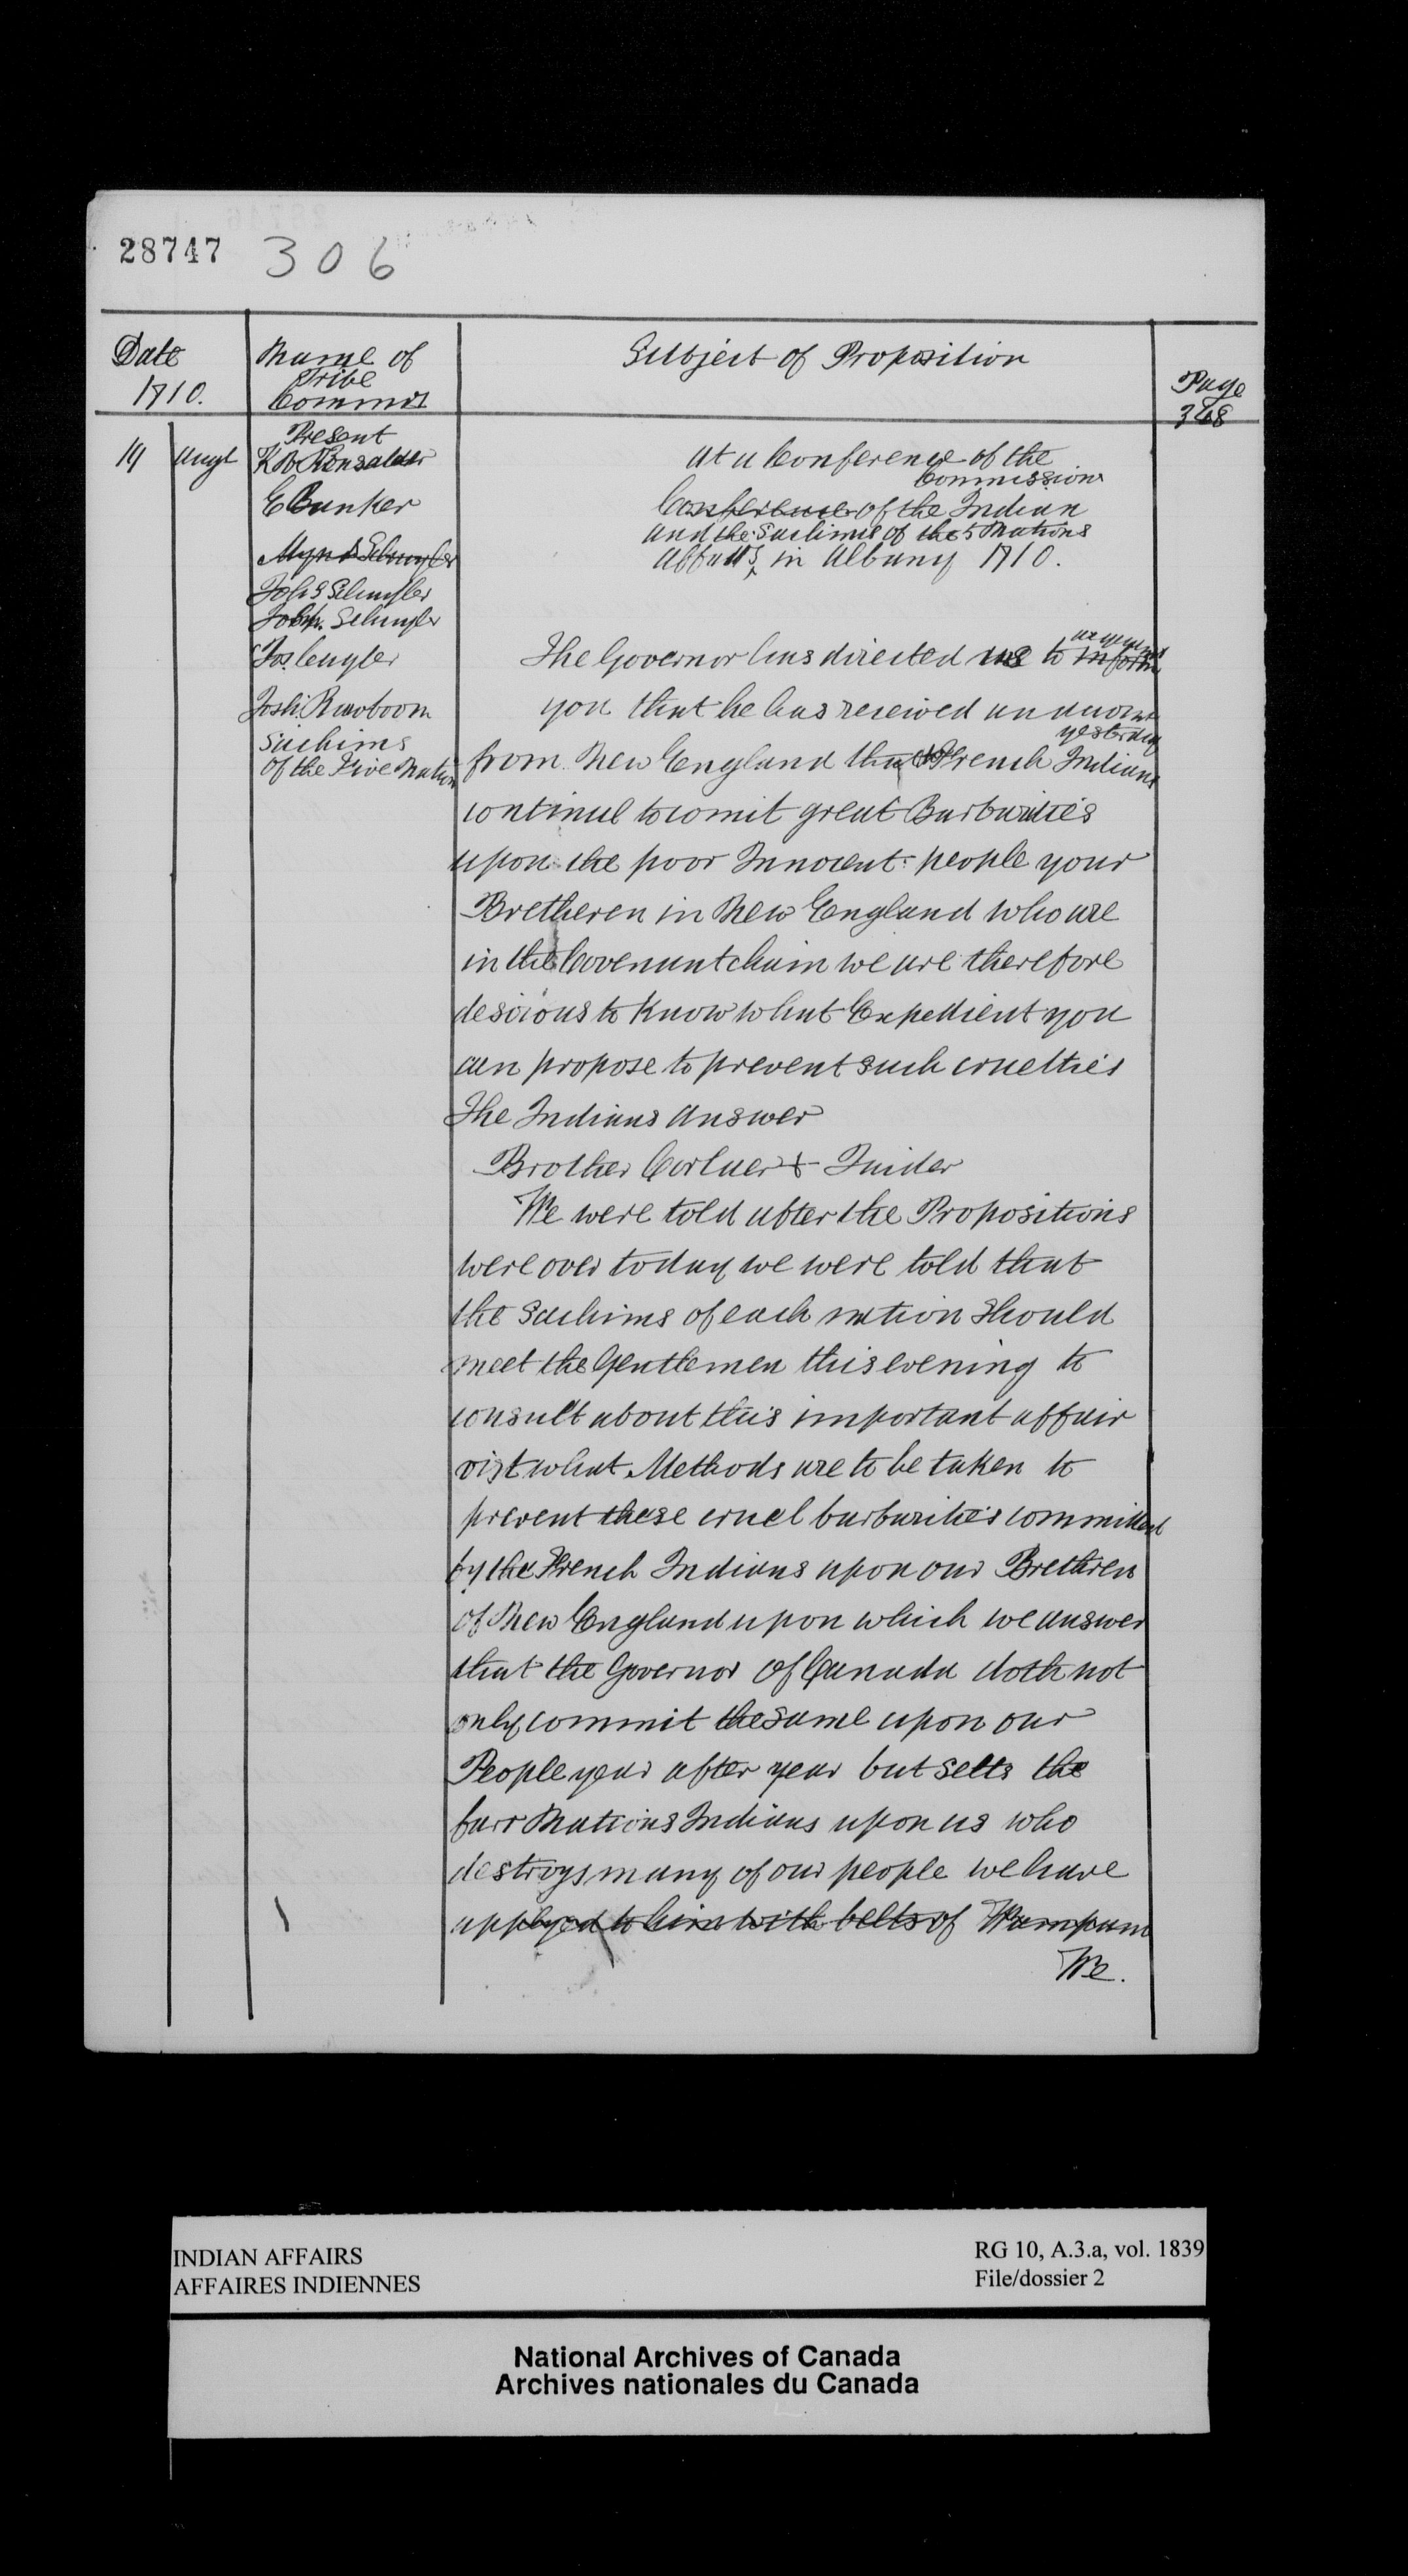 28747 306
Date
1710.
Name of
Tribe
Commrs
Subject of Proposition
Page
368
19 Augt
Present
K V Renselaer
E Banker
Mynd Schuyler
Joh s Schuyler
Joh. Schuyler
Jos. Cuyler
Joh. Rooboom
Sachims
Of the Five Nation
At a Conference of the
Commissions
Conference of the Indian
and the Sachims of the 5 Nations
Affairs in Albany 1710.
The Governor has directed us to inform
you that he has received an account
yesterday
from New England that the French Indians
continue to comit great Barbarities
upon the poor Innocent people your
Bretheren in New England who are
in the Covenant chain we are therefore
desirous to know what Expedient you
can propose to prevent such cruelties
The Indians Answer
Brother Corlaer & Quider
We were told after the Propositions
were over today we were told that
the Sachims of each nation should
meet the Gentlemen this evening to
consult about this important affair
vizt what Methods are to be taken to
prevent these cruel barbarities committed
by the French Indians upon our Brethren
of New England upon which we answer
that the Governor of Canada doth not
only commit the same upon our
People year after year but setts the
farr Nations Indians upon us who
destroys many of our people we have
applyed to him with belts of Wampum
We.
INDIAN AFFAIRS
AFFAIRES INDIENNES
RG 10, A.3.a, vol. 1839
File/dossier 2
National Archives of Canada
Archives nationales du Canada